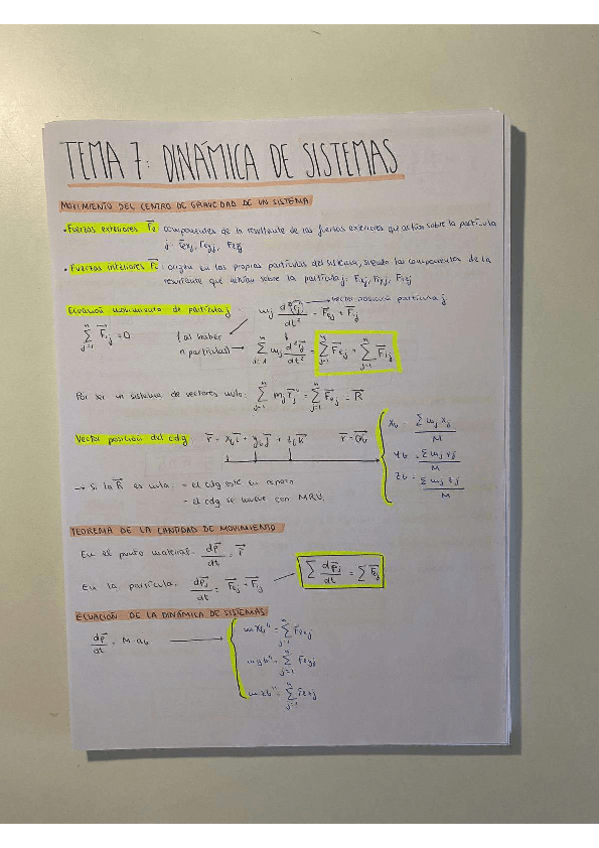 TEMA 7: DINÁMICA DE SISTEMAS
MOVIMIENTO DEL CENTRO DE GRAVEDAD DE UN SISTEMA
• Fuerzas exteriores F⃗e: componentes de la resultante de las fuerzas exteriores que actúan sobre la partícula
j: Fexj, Feyj, Fezj
• Fuerzas interiores F⃗i: en las propias partículas del sistema, siendo las componentes de la
resultante que actúan sobre la partícula j: Fixj, Fiyj, Fizj
Ecuación movimiento de partícula j mj d²r⃗j/dt² = F⃗ej + F⃗ij → vector posición partícula j
Σ(j=1, n) F⃗ij = 0 (al haber
n partículas) Σ(j=1, n) mj d²r⃗j/dt² = Σ(j=1, n) F⃗ej + Σ(j=1, n) F⃗ij
Por ser un sistema de vectores nulo: Σ(j=1, n) mj r⃗j'' = Σ(j=1, n) F⃗ej = R⃗
Vector posición del cdg r⃗ = xG i⃗ + yG j⃗ + zG k⃗ r⃗ = OG
xG = Σ mj xj / M
yG = Σ mj yj / M
zG = Σ mj zj / M
→ Si la R⃗ es nula: - el cdg está en
- el cdg se mueve con MRU
TEOREMA DE LA CANTIDAD DE MOVIMIENTO
En el punto material: dp⃗/dt = F⃗
En la partícula: dp⃗j/dt = F⃗ej + F⃗ij → Σ dp⃗j/dt = Σ F⃗ej
ECUACIÓN DE LA DINÁMICA DE SISTEMAS
dp⃗/dt = M · aG →
m xG'' = Σ(j=1, n) Fexj
m yG'' = Σ(j=1, n) Feyj
m zG'' = Σ(j=1, n) Fezj